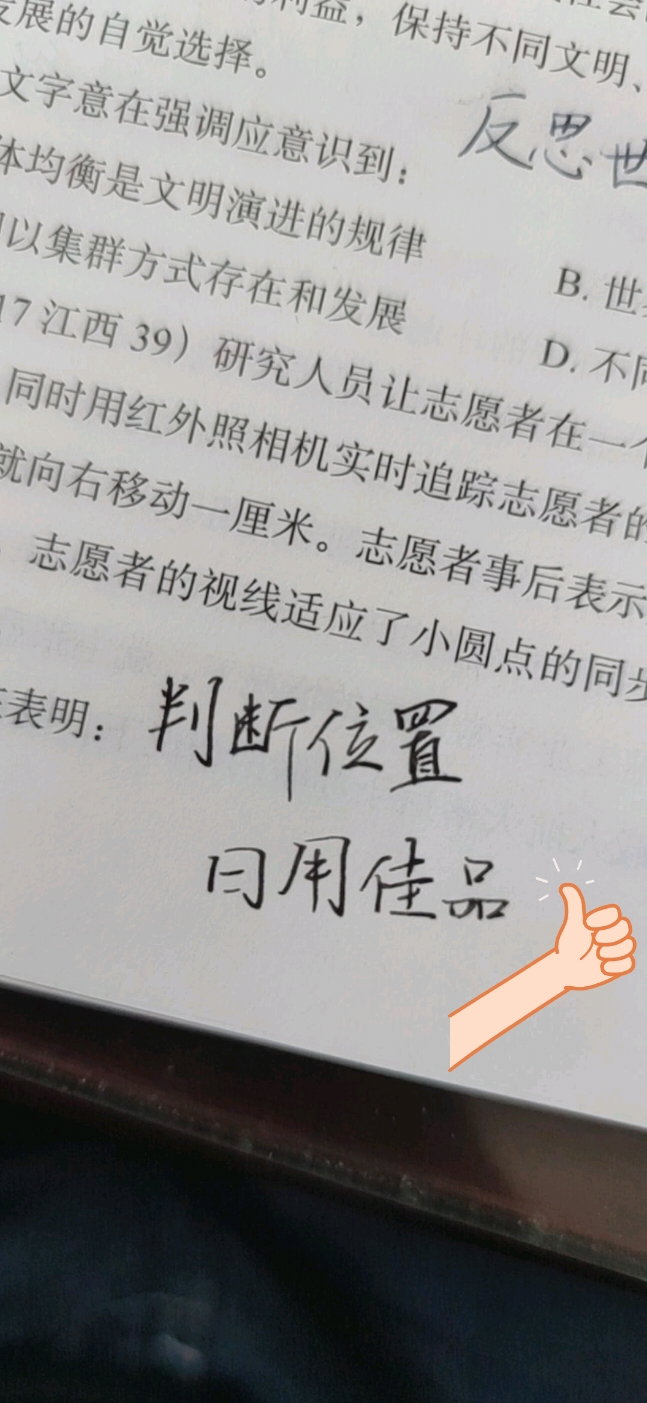 利益，保持不同文明、
发展的自觉选择。
文字意在强调应意识到：
反思世
体均衡是文明演进的规律
B. 世
以集群方式存在和发展
D. 不同
17 江西 39）研究人员让志愿者在一个
同时用红外照相机实时追踪志愿者的
就向右移动一厘米。志愿者事后表示
志愿者的视线适应了小圆点的同步
表明：判断位置
日用佳品